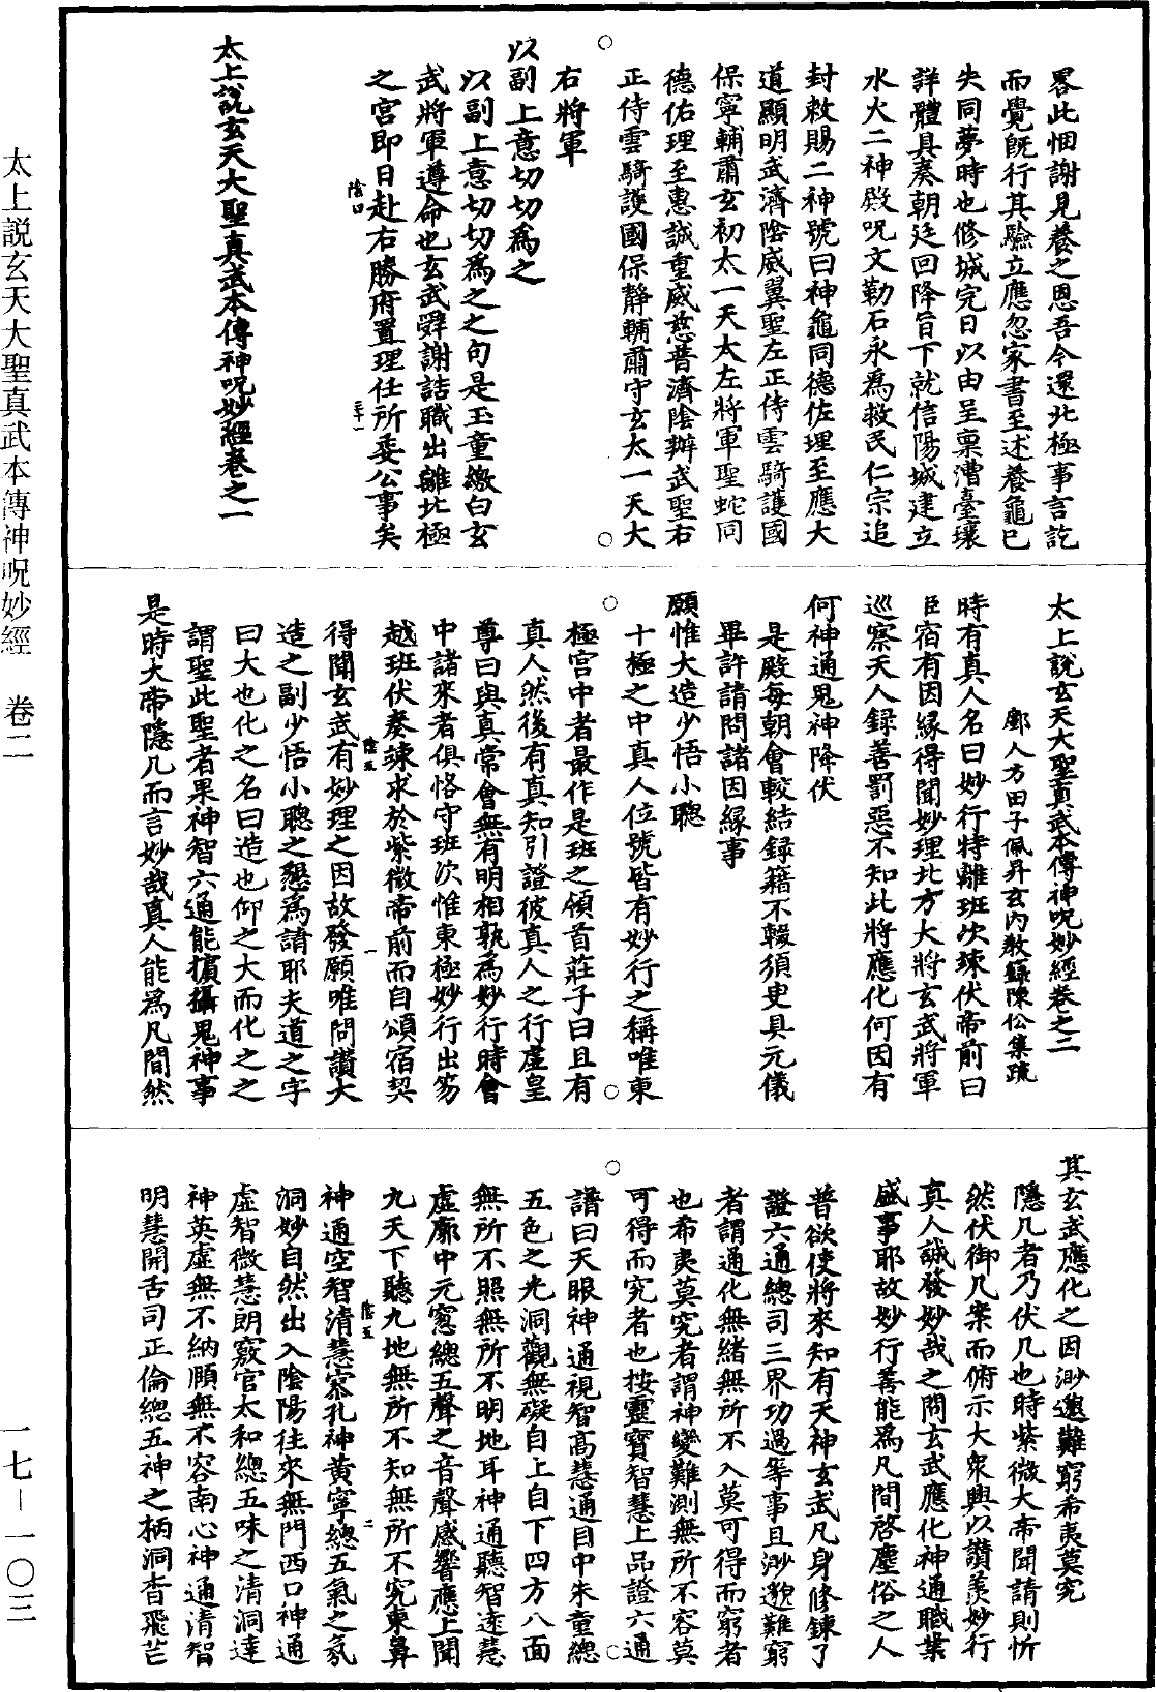 畧此悃謝見養之恩吾今還北極事言訖
而覺旣行其驗立應忽家書至述養龜已
失同夢時也修城完日以由呈稟漕臺瓌
詳體具奏朝廷回降旨下就信陽城建立
水火二神殿呪文勒石永爲救民仁宗追
封敕賜二神號曰神龜同德佐理至應大
道顯明武濟陰威翼聖左正侍雲騎護國
保寧輔肅玄初太一天大左將軍聖蛇同
德佑理至惠誠重威慈普濟陰辦武聖右
正侍雲騎護國保靜輔肅守玄太一天大
右將軍
以副上意切切爲之
以副上意切切爲之之句是玉童繳白玄
武將軍遵命也玄武舜謝誥職出離北極
之宮即日赴右勝府置理任所委公事矣
太上說玄天大聖真武本傳神呪妙經卷之一
太上說玄天大聖真武本傳神呪妙經卷之二
鄮人方田子佩昇玄內教籙陳伀集疏
時有真人名曰妙行特離班次竦伏帝前曰
臣宿有因緣得聞妙理北方大將玄武將軍
巡察天人錄善罰惡不知此將應化何因有
何神通鬼神降伏
是殿每朝會較結錄籍不輟須臾具元儀
畢許請問諸因緣事
願惟大造少悟小聰
十極之中真人位號皆有妙行之稱唯東
極宮中者最作是班之領首莊子曰且有
真人然後有真知引證彼真人之行虛皇
尊曰與真常會無有明相孰爲妙行時會
中諸來者俱恪守班次惟東極妙行出笏
越班伏奏竦求於紫微帝前而自頌宿契
得聞玄武有妙理之因故發願唯問讚大
造之副少悟小聰之懇爲請耶夫道之字
曰大也化之名曰造也仰之大而化之之
謂聖此聖者果神智六通能擴攝鬼神事
是時大帝隱几而言妙哉真人能爲凡間然
其玄武應化之因渺邈難窮希夷莫究
隱几者乃伏几也時紫微大帝聞請則忻
然伏御几案而俯示大衆興以讚羨妙行
真人誠發妙哉之問玄武應化神通職業
盛事耶故妙行善能爲凡間啓塵俗之人
普欲使將來知有天神玄武凡身修鍊了
證六通總司三界功過等事且渺邈難窮
者謂通化無緒無所不入莫可得而窮者
也希夷莫究者謂神變難測無所不容莫
可得而究者也按靈寶智慧上品證六通
譜曰天眼神通視智高慧通目中朱童總
五色之光洞觀無礙自上自下四方八面
無所不照無所不明地耳神通聽智遠慧
虛廓中元窻總五聲之音聲感響應上聞
九天下聽九地無所不知無所不究東鼻
神通空智清慧察孔神黃寧總五氣之氛
洞妙自然出入陰陽往來無門西口神通
虛智微慧朗竅官太和總五味之清洞達
神英虛無不納順無不容南心神通清智
明慧開舌司正倫總五神之柄洞杳飛芒
太上説玄天大聖真武本傳神呪妙經　卷二
一七－一〇三